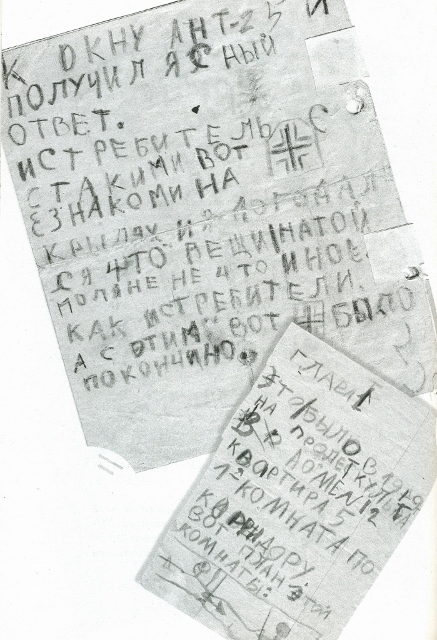 К ОКНУ АНТ-25 И
ПОЛУЧИЛ ЯСНЫЙ
ОТВЕТ.
ИСТРЕБИТЕЛЬ С
ТАКИМИ ВОТ
ЗНАКОМИ НА
КРЫЛЯХ И Я ДОГОДАЛ
СЯ ЧТО ВЕЩИ НА ТОЙ
ПОЛЯНЕ НЕ ЧТО ИНОЕ
КАК ИСТРЕБИТЕЛИ.
А С ЭТИМ ВОТ БЫЛО
ПОКОНЧИНО.
ГЛАВА 1
ЭТО БЫЛО В
НА ПРОЛЕТКУЛЬТА
В ДОМЕ N12
КВАРТИРА 5
КОМНАТА ПО
КОРРИДОРУ.
ВОТ ПЛАН ЭТОЙ
КОМНАТЫ: